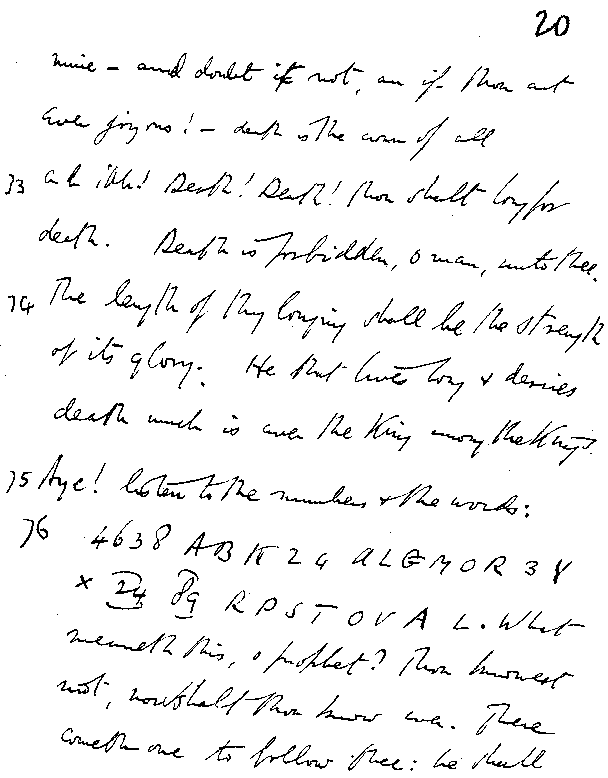 20
mine - and doubt it not, an if thou art
ever joyous! - death is the crown of all
73 Ah! Ah! Death! Death! thou shalt long for
death. Death is forbidden, o man, unto thee.
74 The length of thy longing shall be the strength
of its glory. He that lives long & desires
death much is ever the King among the Kings.
75 Aye! listen to the numbers & the words:
76 4638 ABK 24 ALGMOR 3Y
X 24 89 RPSTOVAL. What
meaneth this, o prophet? Thou knowest
not, nor shalt thou know ever. There
cometh one to follow thee: he shall